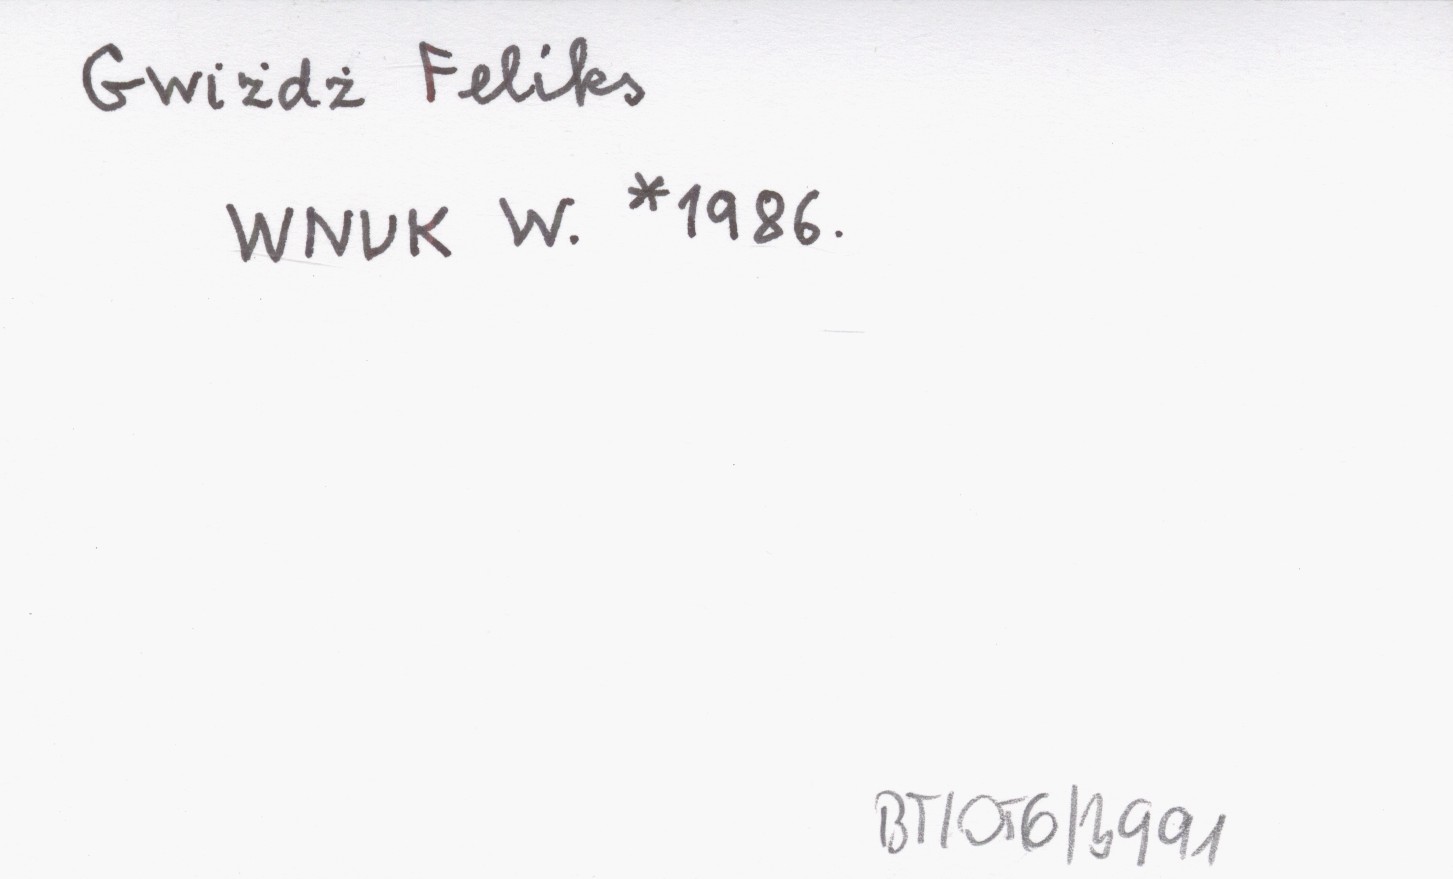 Gwiżdż Feliks
WNUK W. *1986.
BT/OTG/3991